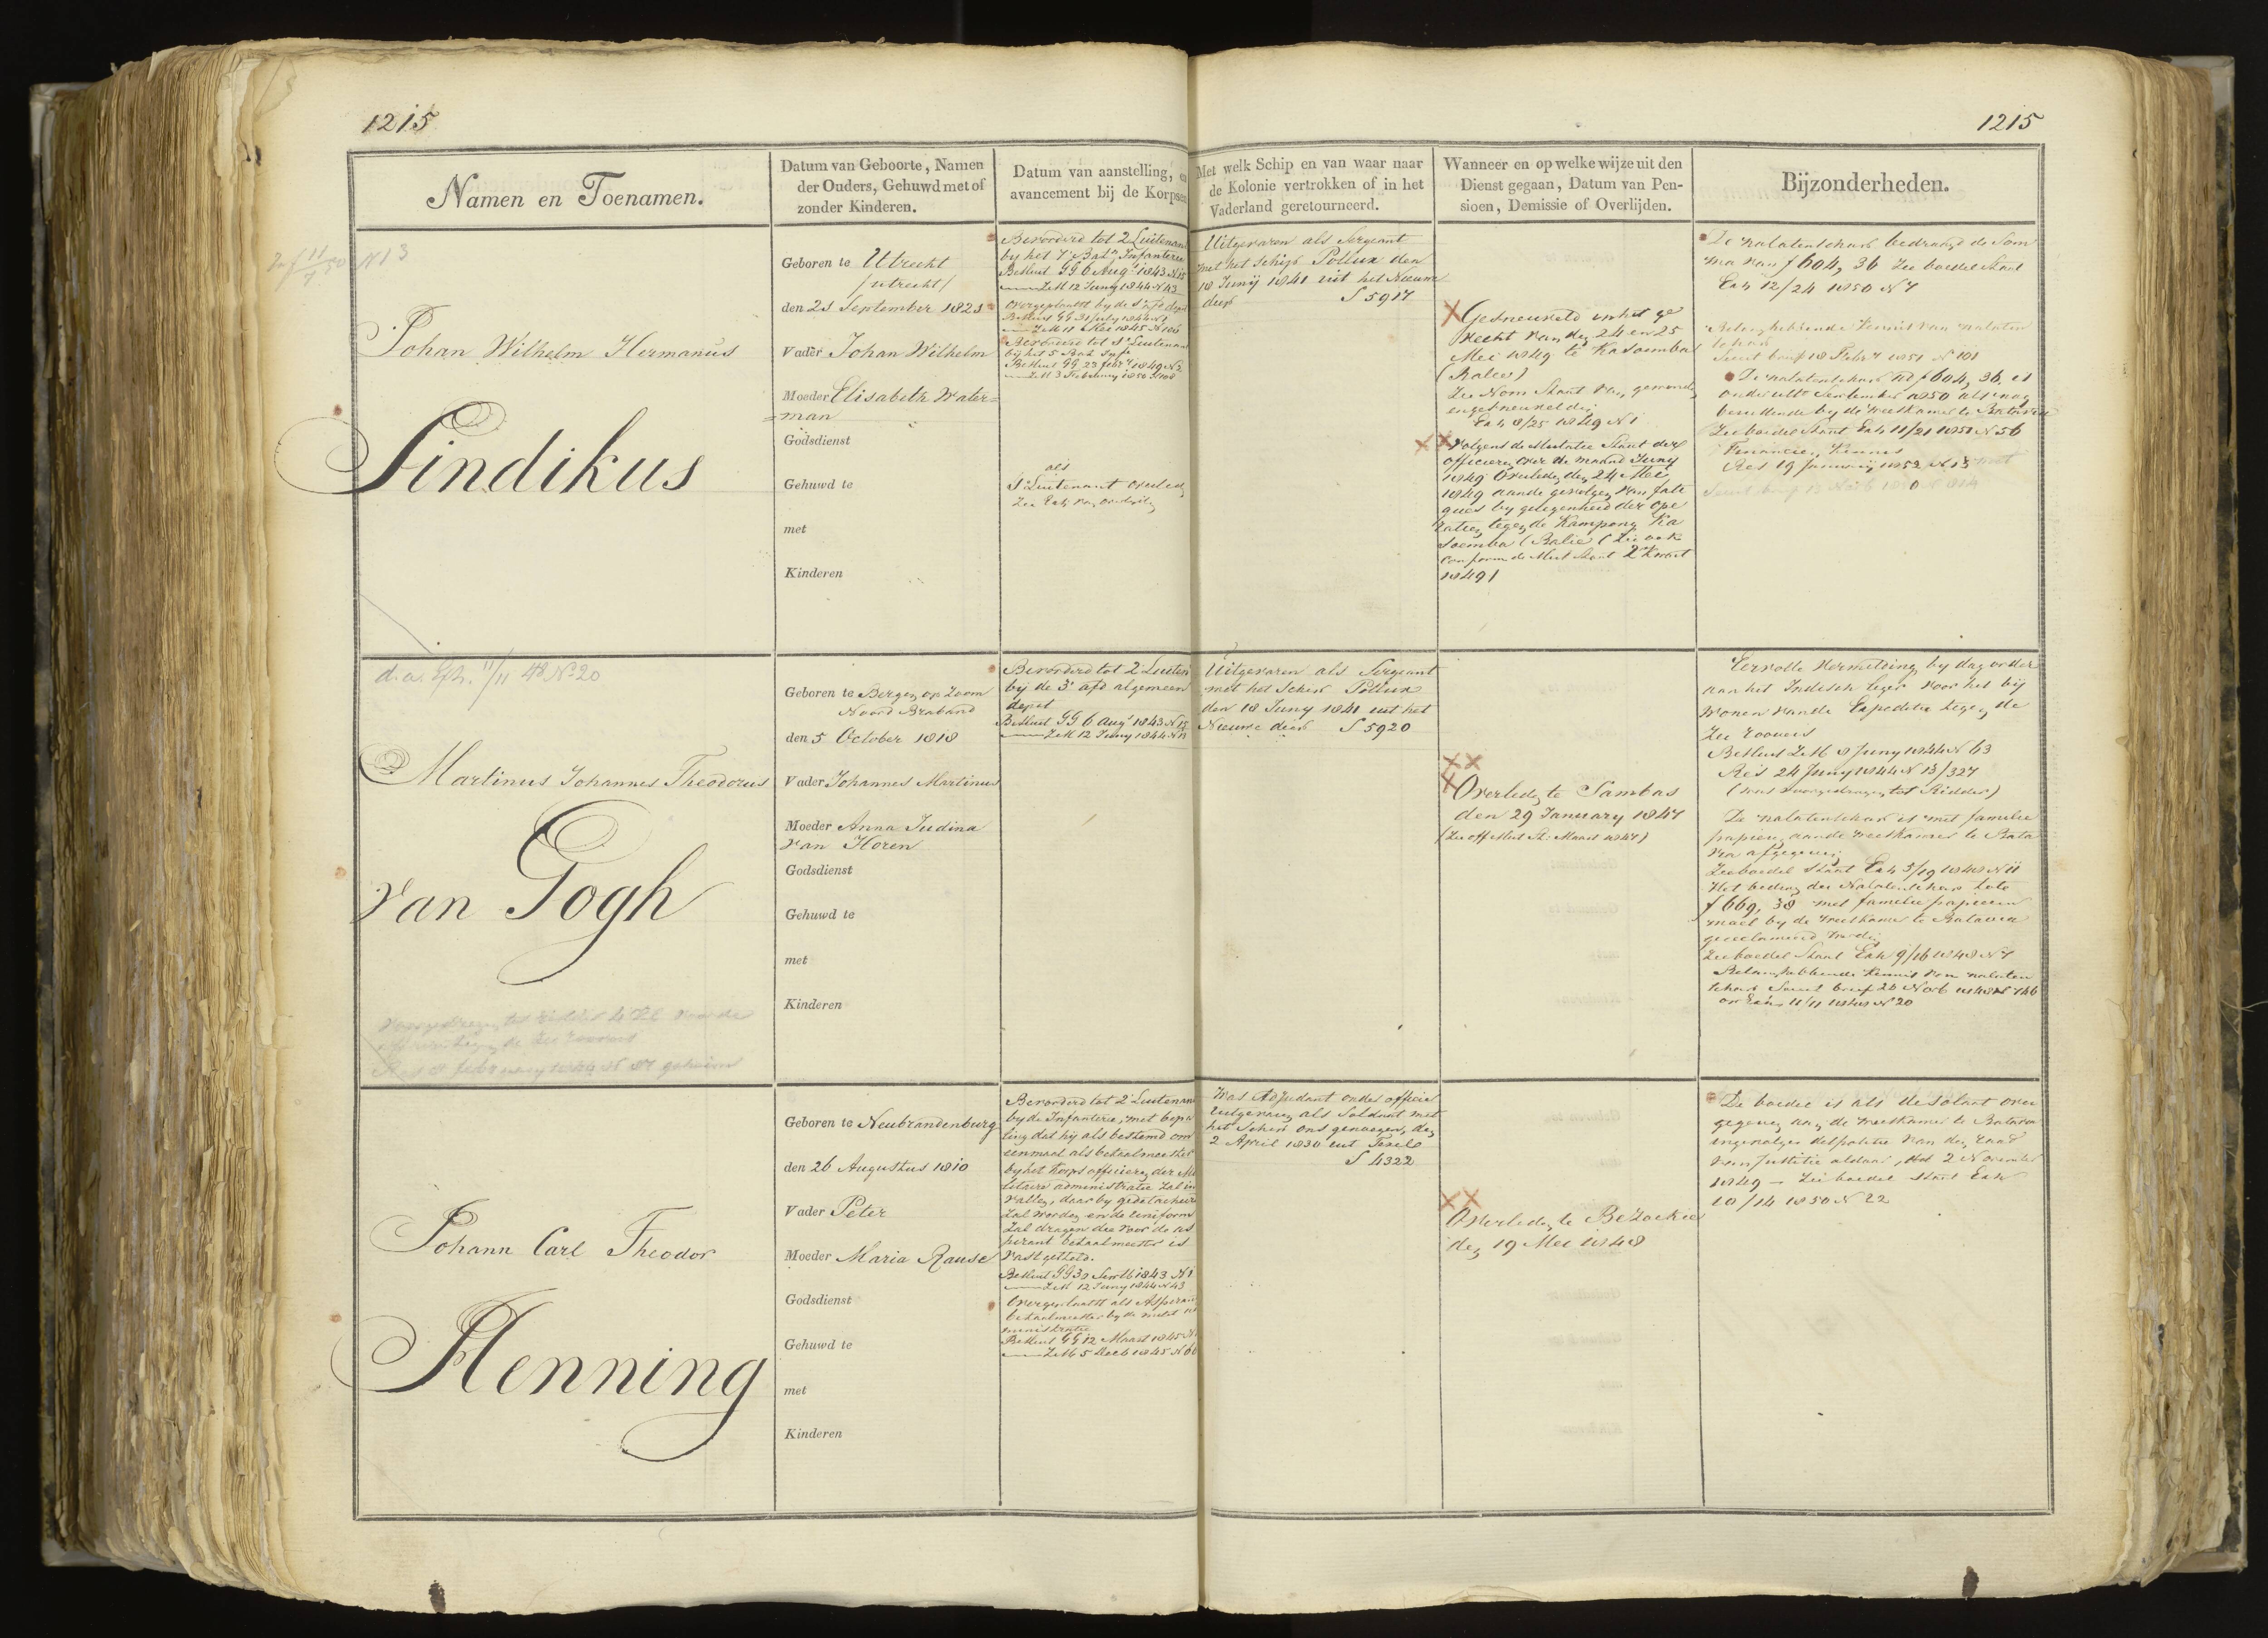 1215
1215
Namen en Toenamen.
Datum van Geboorte, Namen
der Ouders, Gehuwd met of
zonder Kinderen.
Datum van aanstelling, en
avancement bij de Korpsen
Met welk Schip en van waar naar
de Kolonie vertrokken of in het
Vaderland geretourneerd.
Wanneer en op welke wijze uit den
Dienst gegaan, Datum van Pen-
sioen, Demissie of Overlijden.
Bijzonderheden.
N 13
Johan Wilhelm Hermanus
Sindikus
Geboren te Utrecht
/utrecht/
den 23 September 1823
Vader Johan Wilhelm
Moeder Elisabeth Water=
=man
Godsdienst
Gehuwd te
met
Kinderen
Bevorderd tot 2 Luitenant
by het 7e Bat.n Infanterie
Besluit GG 6 Augs 1843 N 15
ZM 12 Juny 1844 N 43
Overgeplaatst by de
Besluit GG 31 July 1844 N
ZM 11 Mei 1845 N 106
Bevorderd tot 1e Luitenant
bij het 5 Bat Infe
Besluit GG 23 febry 1849 N 2
ZM 3 February 1850 N 108
als
1e Luitenant overleden
Uitgevaren als Sergeant
met het schip Pollux den
18 Junij 1841 uit het Nieuwe
diep S 5917
Gesneuveld in het ge
vecht van den 24 en 25
Mei 1849 te Kasoemba
(Balie)
Zie Nom Staat van gewonde
en gesneuvelden
Exh 8/25 1849 N 1
Volgens de Mutatie Staat der
officieren over de maand Juny
1849 Overleden den 24 Mei
1849 aan de gevolgen van fati
gues by gelegenheid der ope
ratien tegen de Kampong Ka
soemba (Balie (Zie ook
conform de Mut Staat 2e Kwart
1849)
De nalatenschap bedraagd de Som
ma van f 604,36 Zie boedel Staat
Exh 12/24 1850 N 7
Belanghebbende kennis van nalaten
schap
Semit brief 18 Febry 1851 N 101
De nalatenschap ad f 604,36 is
onder ulto September 1850 als nog
berustende by de weeskamer te Batavia
Zie boedel Staat Exh 11/21 1851 N 56
Financie, Kennis
Res 19 January 1852 N 13
d.a. Exh. 11/11 48 No 20
Martinus Johannes Theodorus
van Gogh
Geboren te Bergen op Zoom
Noord Braband
den 5 October 1818
Vader Johannes Martinus
Moeder Anna Judina
van Horen
Godsdienst
Gehuwd te
met
Kinderen
Bevorderd tot 2 Luiten
bij de 3e afd algemeen
depot
Besluit GG 6 Augs 1843 N 15
ZM 12 Juny 1844 N
Uitgevaren als Sergeant
met het schip Pollux
den 18 Juny 1841 uit het
Nieuwe diep S 5920
Overleden te Sambas
den 29 January 1847
(Zie off Mut St: Maart 1847)
Eervolle Vermelding by dag order
aan het Indisch leger voor het bij
wonen van de Expeditie tegen de
Zee roovers
Besluit ZM 8 Juny 1844 N 63
Res 24 Juny 1844 N 13/327
(was voorgedragen tot Ridder)
De nalatenschap is met familie
papieren aan de weeskamer te Bata
via afgegeven
Zie boedel Staat Exh 5/19 1848 N 11
Het bedrag der Nalatenschap Zato
f 669,38 met familie papieren
moet by de weeskamer te Batavia
gereclameerd worden
Zie boedel Staat Exh 9/16 1848 N 7
Belanghebbende kennis van nalaten
schap Semit brief 20 Novb 1848 N 746
op Exh 11/11 1848 N 20
Johann Carl Theodor
Henning
Geboren te Neubrandenburg
den 26 Augustus 1810
Vader Peter
Moeder Maria Rause
Godsdienst
Gehuwd te
met
Kinderen
Bevorderd tot 2 Luitenant
by de Infanterie, met bepa
ling dat hij als bestemd om
eenmaal als betaalmeester
by het Korps officieren der Mi
litaire administratie zal in
vallen, daar by gedetacheerd
zal worden en de uniform
zal dragen die voor de as
pirant betaalmeester is
vastgesteld.
Besluit GG 30 Septb 1843 N 1
ZM 12 Juny 1844 N 43
Overgeplaatst als Aspirant
betaalmeester by de milit ad
ministratie
Besluit GG 12 Maart 1845 N
ZM 5 Decb 1845 N 60
Was Adjudant onder officier
Uitgevaren als Soldaat met
het Schip Ons genoegen, den
2 April 1830 uit Texel
S 4322
Overleden te Bezoekie
den 19 Mei 1848
De boedel is als desolaat over
gegeven aan de weeskamer te Batavia
ingevolge dispositie van den raad
van Justitie aldaar, dd 2 November
1849 – Zie boedel staat Exh
10/14 1850 N 22